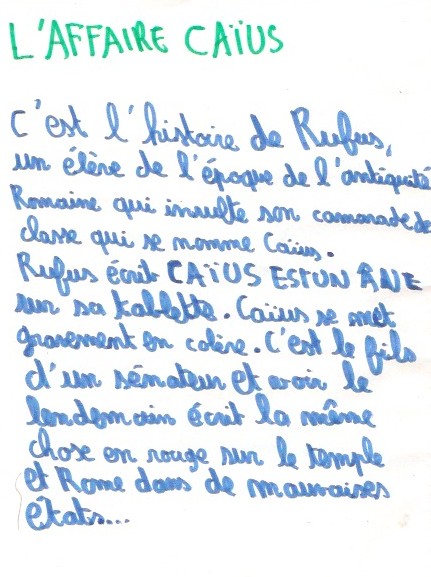 L'AFFAIRE CAÏUS
C'est l'histoire de Rufus,
un élève de l'époque de l'antiquité
Romaine qui insulte son camarade de
classe qui se nomme Caïus.
Rufus écrit CAÏUS EST UN ÂNE
sur sa tablette. Caïus se met
gravement en colère. C'est le fils
d'un sénateur et voir le
lendemain écrit la même
chose en rouge sur le temple
et Rome dans de mauvaises
états....